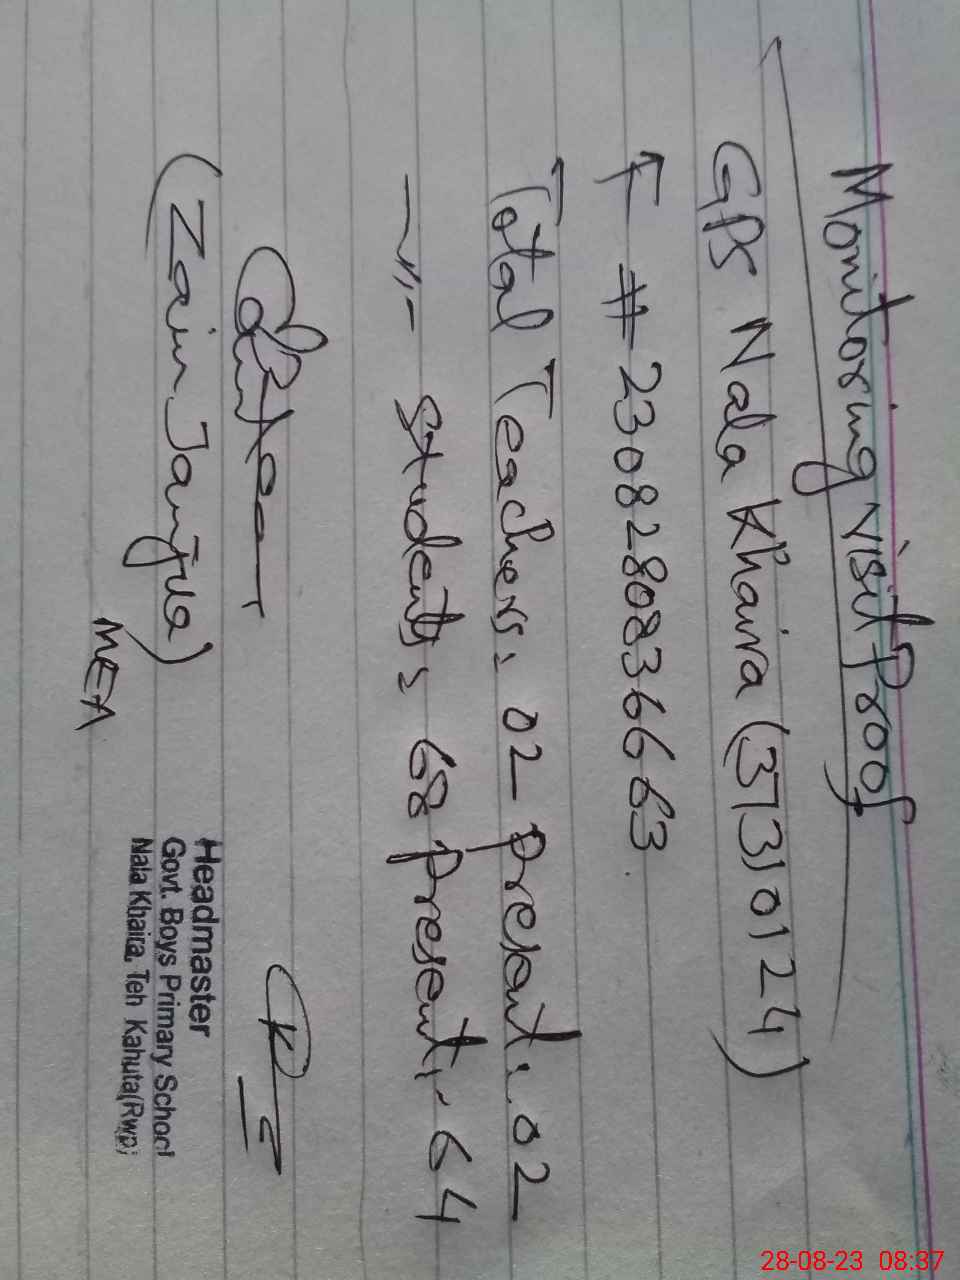 Monitoring Visit Proof
GPS Nala Khaira (37310124)
T # 23082808366 63
Total Teachers: 02 Present: 02
—〃— students: 68 Present: 64
(Zain Janjua)
MEA
Headmaster
Govt. Boys Primary School
Nala Khaira, Teh Kahuta(Rwp)
28-08-23 08:37